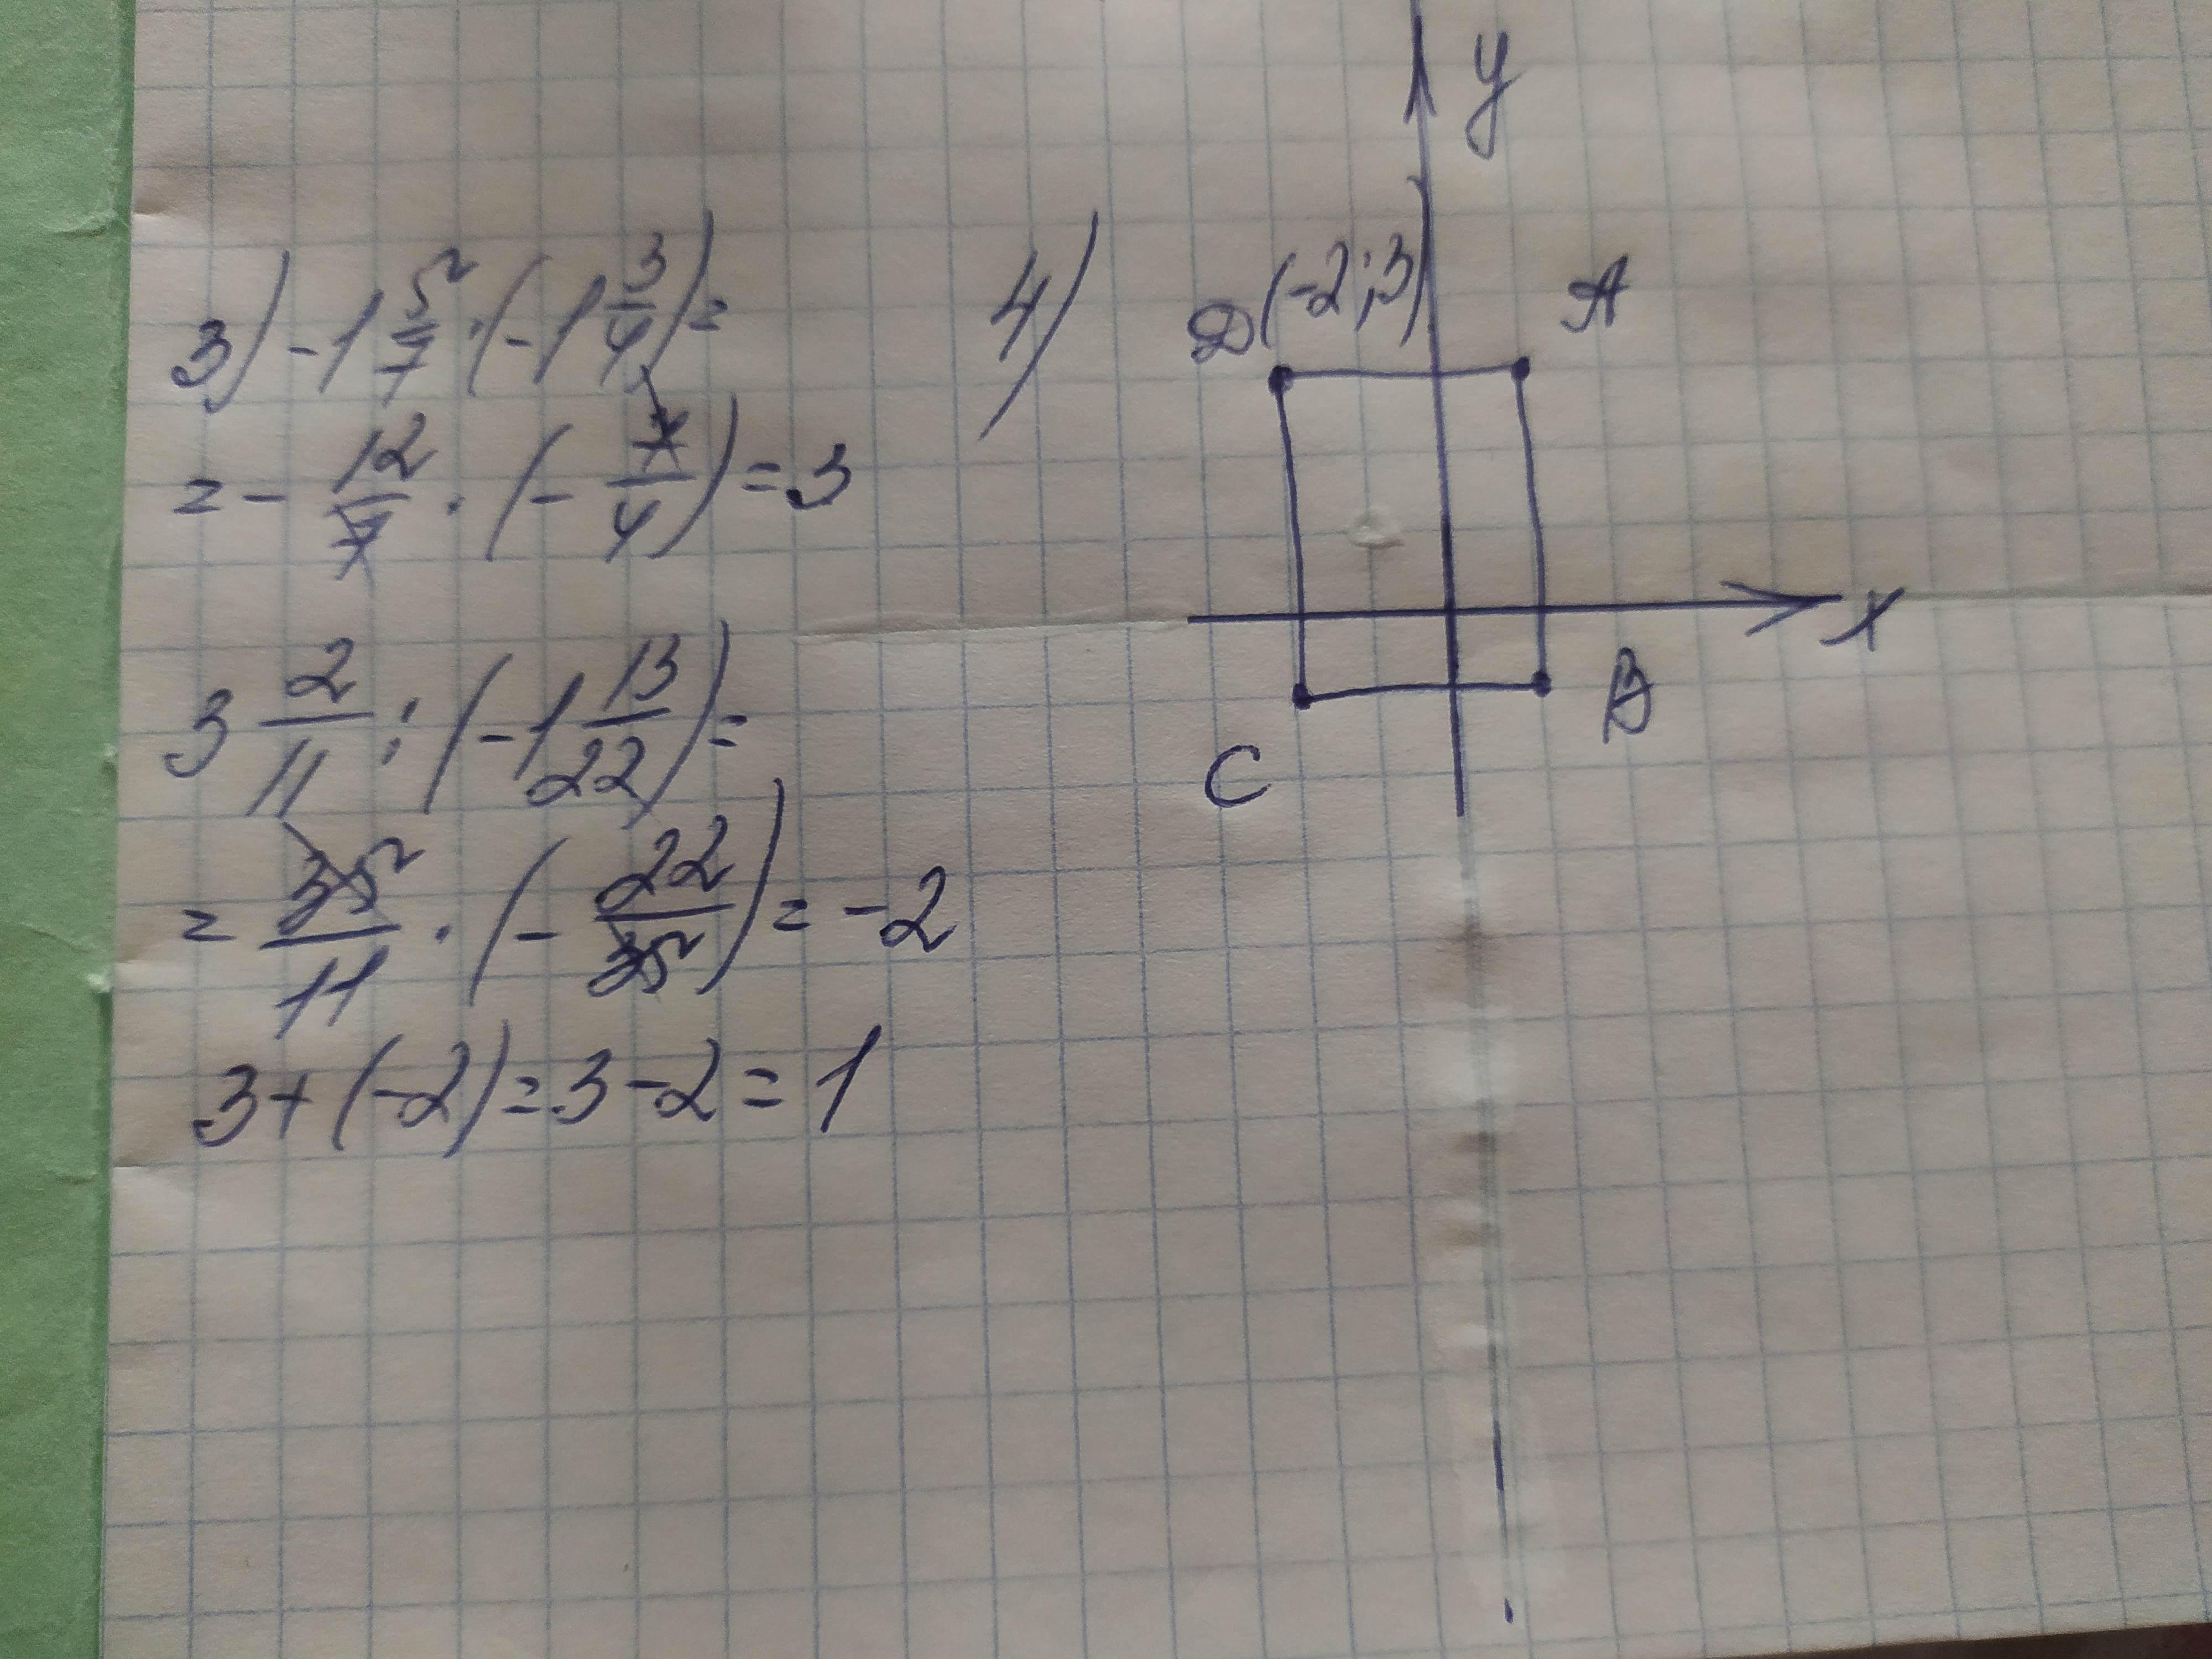 3) -1 5/7 · (-1 3/4) =
= - 12/7 · (- 7/4) = 3
3 2/11 : (-1 13/22) =
= 35/11 · (- 22/35) = -2
3 + (-2) = 3 - 2 = 1
4)
y
D(-2;3)
A
x
B
C